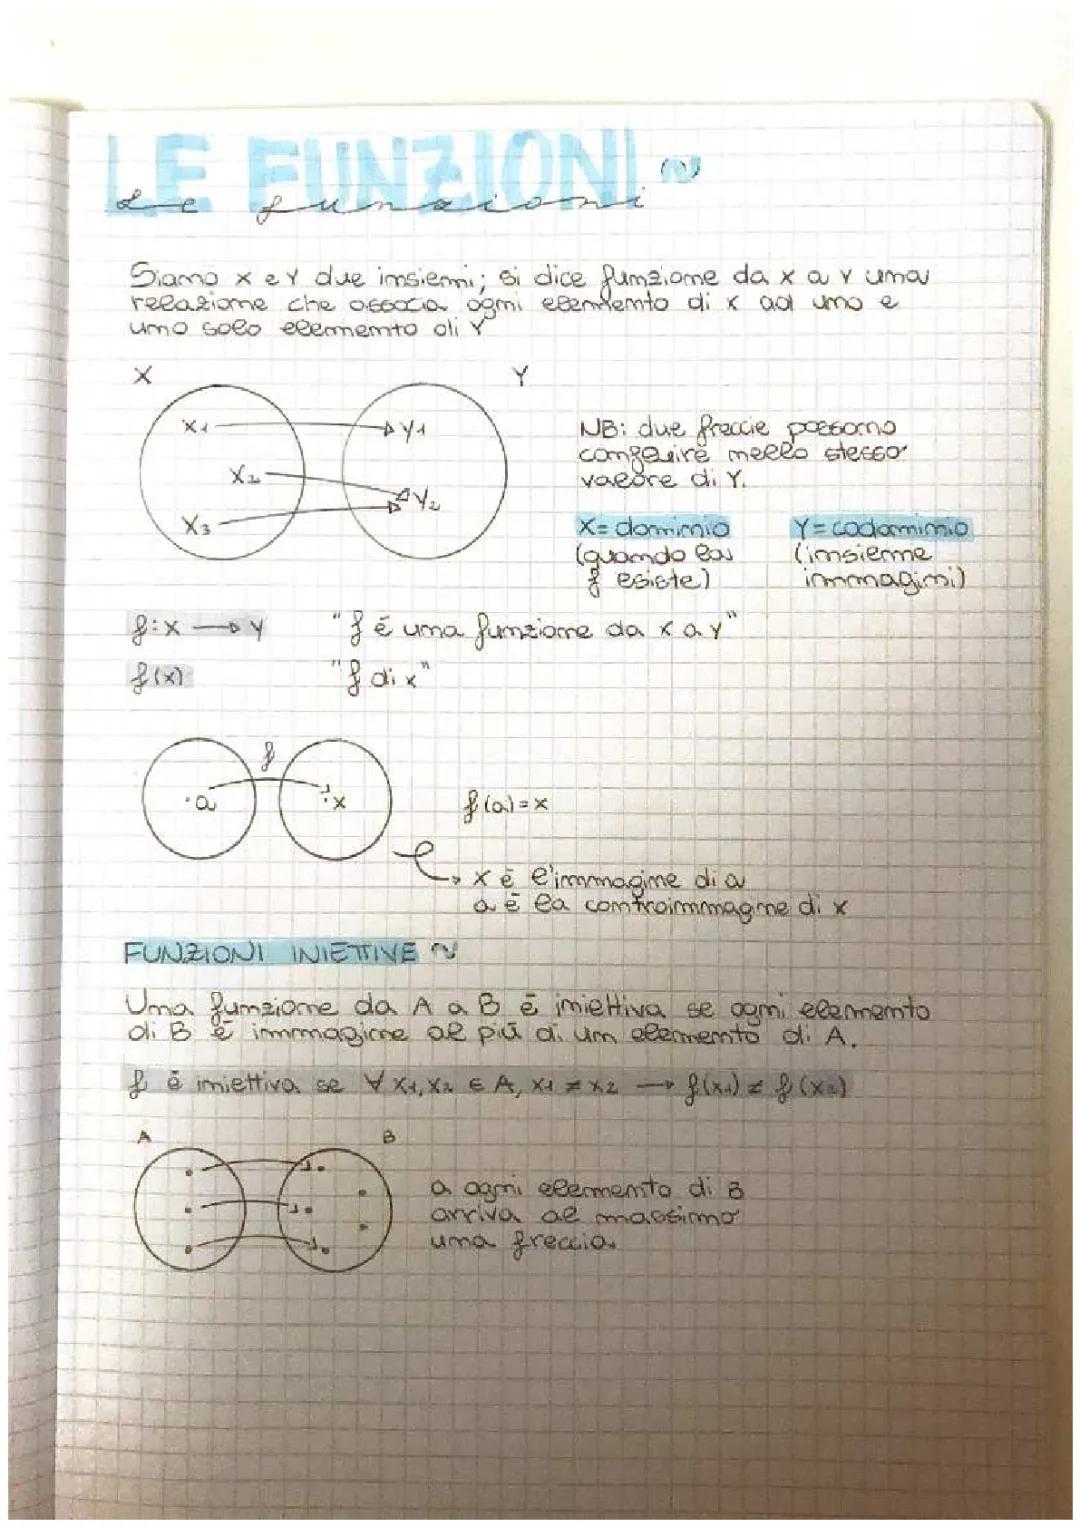 LE FUNZIONI ~
Le funzioni
Siano X e Y due insiemi; si dice funzione da X a Y una
relazione che associa ogni elemento di X ad uno e
uno solo elemento di Y
X Y
X1 Y1
X2 Y2
X3
NB: due freccie possono
confluire nello stesso
valore di Y.
X = dominio
(quando la
f esiste)
Y = codominio
(insieme
immagini)
f: X → Y "f é una funzione da X a Y"
f(x) "f di x"
f
a x f(a) = x
x è l'immagine di a
a è la controimmagine di x
FUNZIONI INIETTIVE ~
Una funzione da A a B è iniettiva se ogni elemento
di B è immagine al più di un elemento di A.
f è iniettiva se ∀ X1, X2 ∈ A, X1 ≠ X2 → f(X1) ≠ f(X2)
A B
a ogni elemento di B
arriva al massimo
una freccia